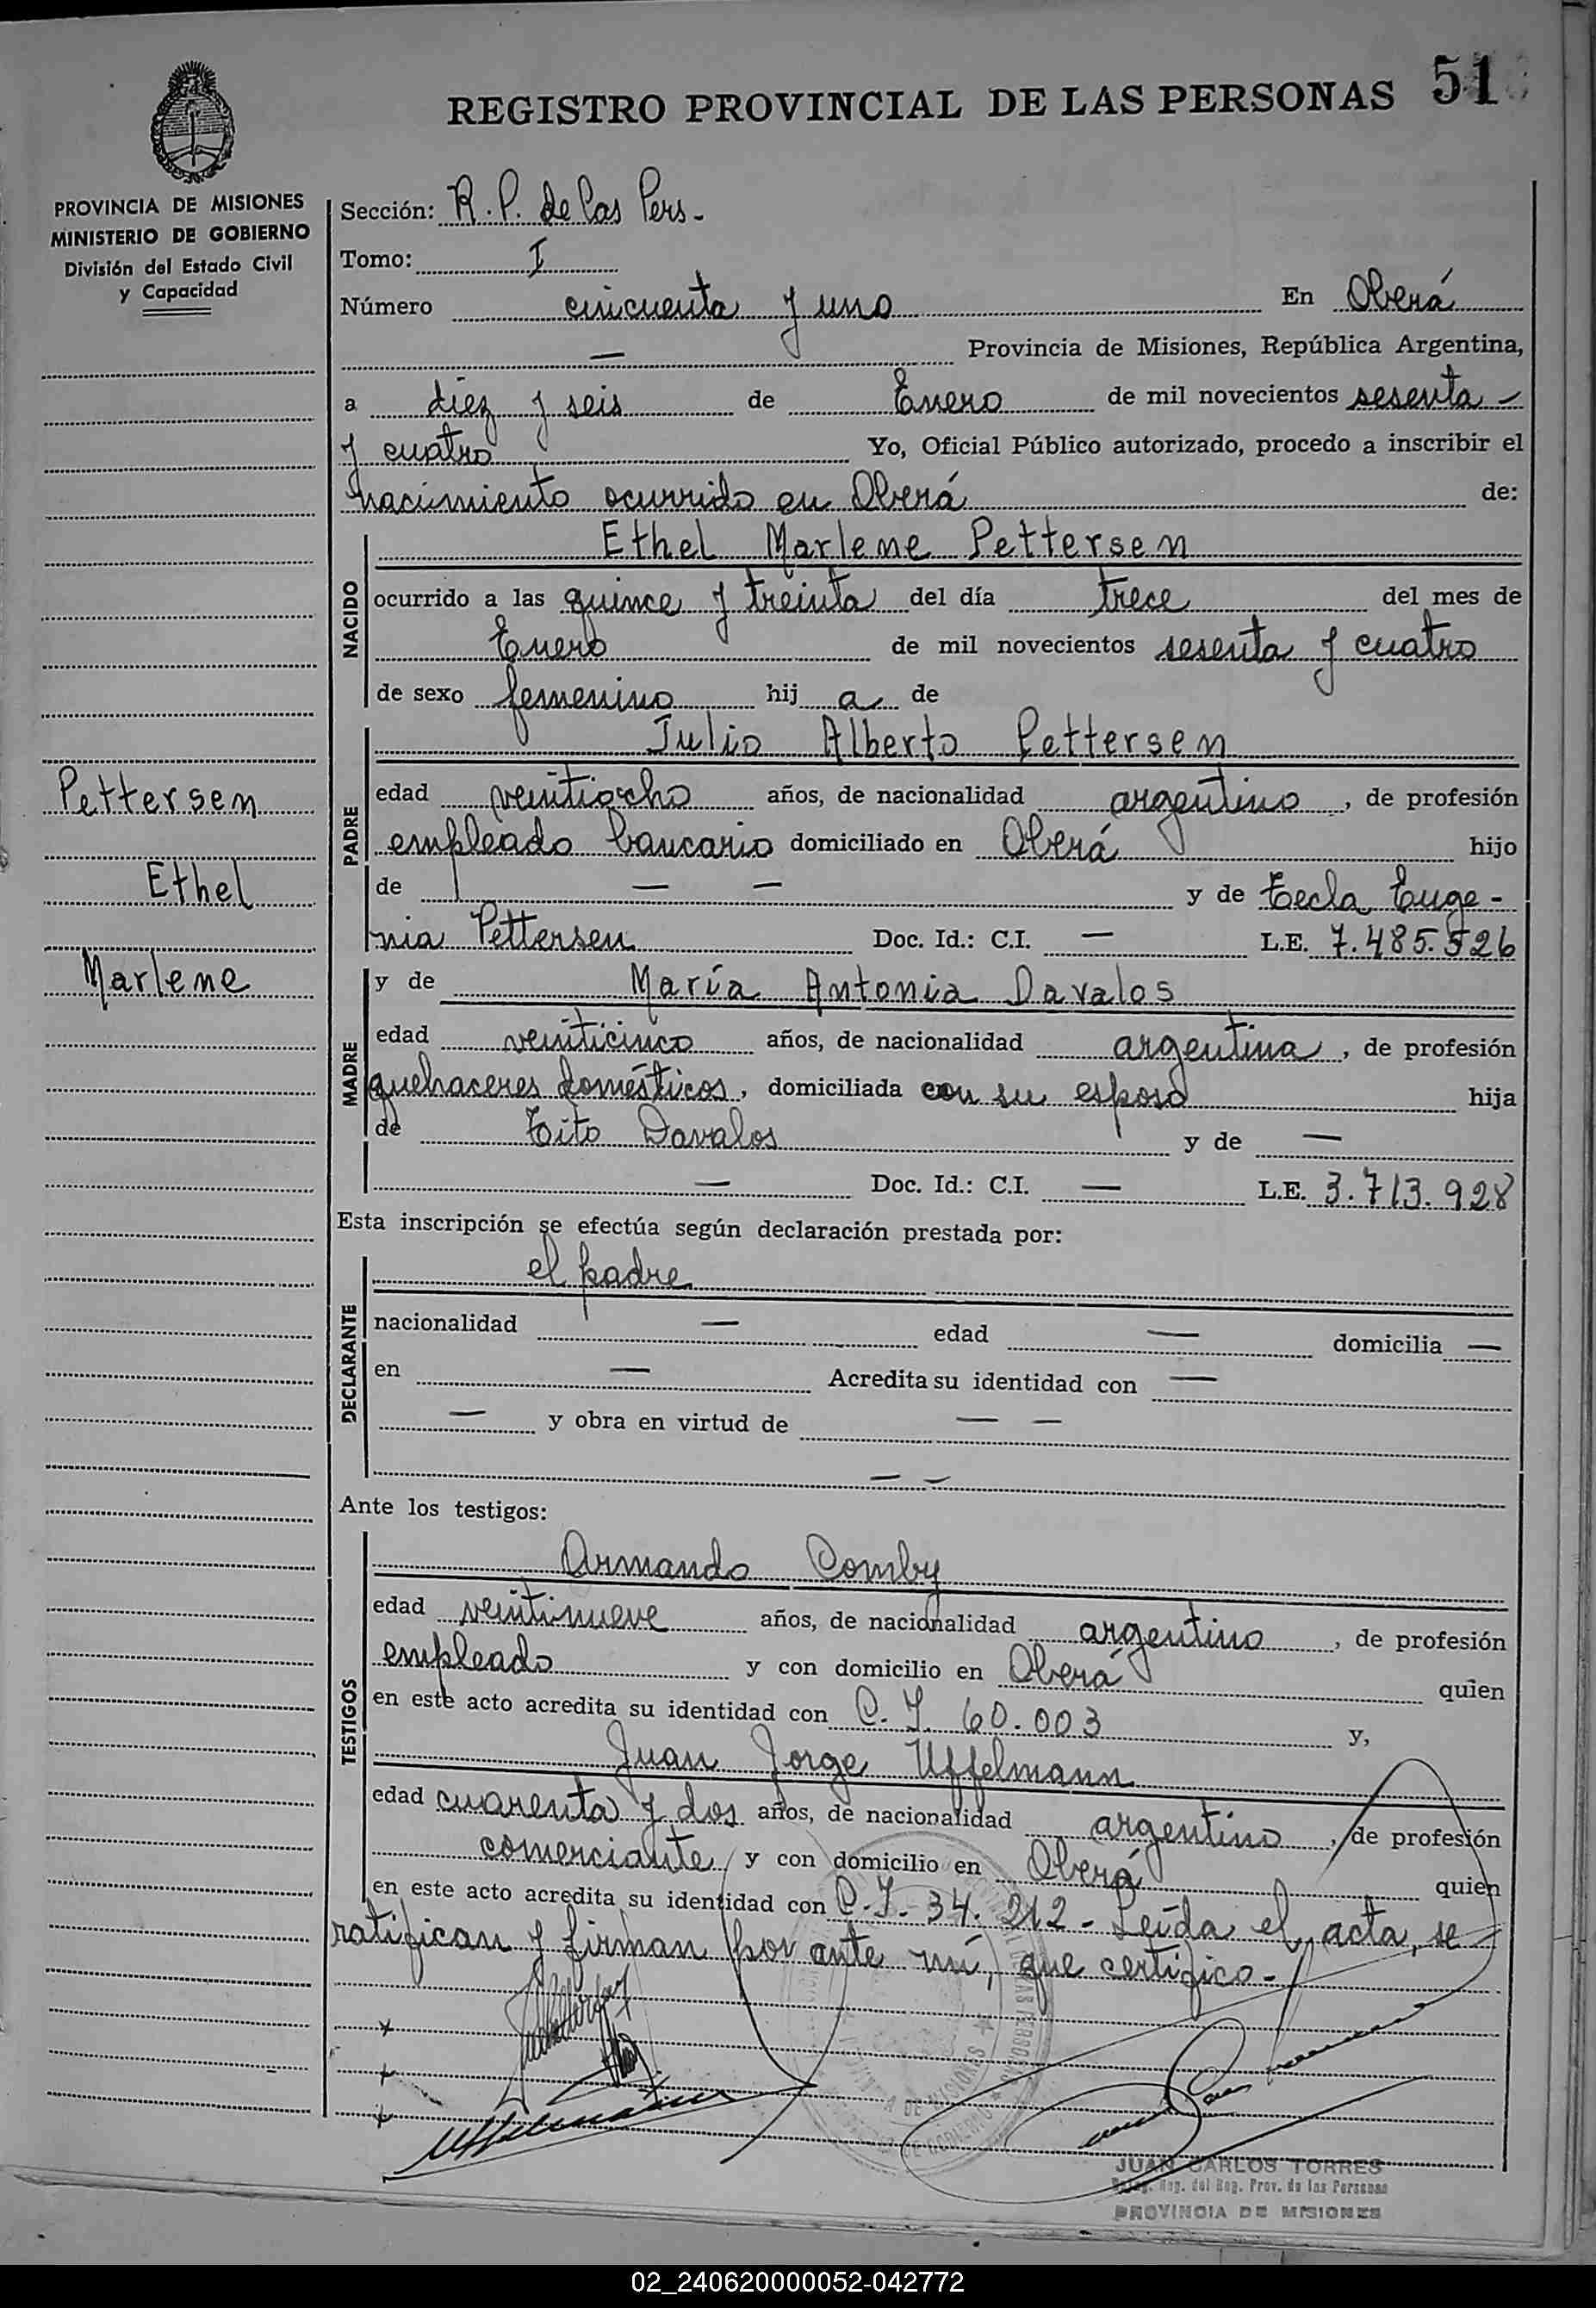 REGISTRO PROVINCIAL DE LAS PERSONAS 51
PROVINCIA DE MISIONES
MINISTERIO DE GOBIERNO
División del Estado Civil
y Capacidad
Pettersen
Ethel
Marlene
Sección: R. P. de las Pers-
Tomo: I
Número cincuenta y uno En Oberá
— Provincia de Misiones, República Argentina,
a diez y seis de Enero de mil novecientos sesenta -
y cuatro Yo, Oficial Público autorizado, procedo a inscribir el
nacimiento ocurrido en Oberá de:
NACIDO
Ethel Marlene Pettersen
ocurrido a las quince y treinta del día trece del mes de
Enero de mil novecientos sesenta y cuatro
de sexo femenino hij a de
PADRE
Julio Alberto Pettersen
edad veintiocho años, de nacionalidad argentino, de profesión
empleado bancario domiciliado en Oberá hijo
de — — y de Tecla Euge-
nia Pettersen Doc. Id.: C.I. — L.E. 7.485.526
MADRE
y de María Antonia Davalos
edad veinticinco años, de nacionalidad argentina, de profesión
quehaceres domésticos, domiciliada con su esposo hija
de Tito Davalos y de —
— Doc. Id.: C.I. — L.E. 3.713.928
Esta inscripción se efectúa según declaración prestada por:
DECLARANTE
el padre
nacionalidad — edad — domicilia —
en — Acredita su identidad con —
— y obra en virtud de — —
— —
Ante los testigos:
TESTIGOS
Armando Comby
edad veintinueve años, de nacionalidad argentino, de profesión
empleado y con domicilio en Oberá quien
en este acto acredita su identidad con C. I. 60.003 y,
Juan Jorge Uffelmann
edad cuarenta y dos años, de nacionalidad argentino, de profesión
comerciante y con domicilio en Oberá quien
en este acto acredita su identidad con C.I. 34.212 - Leída el acta, se
ratifican y firman por ante mí, que certifico.-
x
x
x Uffelmann
JUAN CARLOS TORRES
Reg. del Reg. Prov. de las Personas
PROVINCIA DE MISIONES
02_240620000052-042772